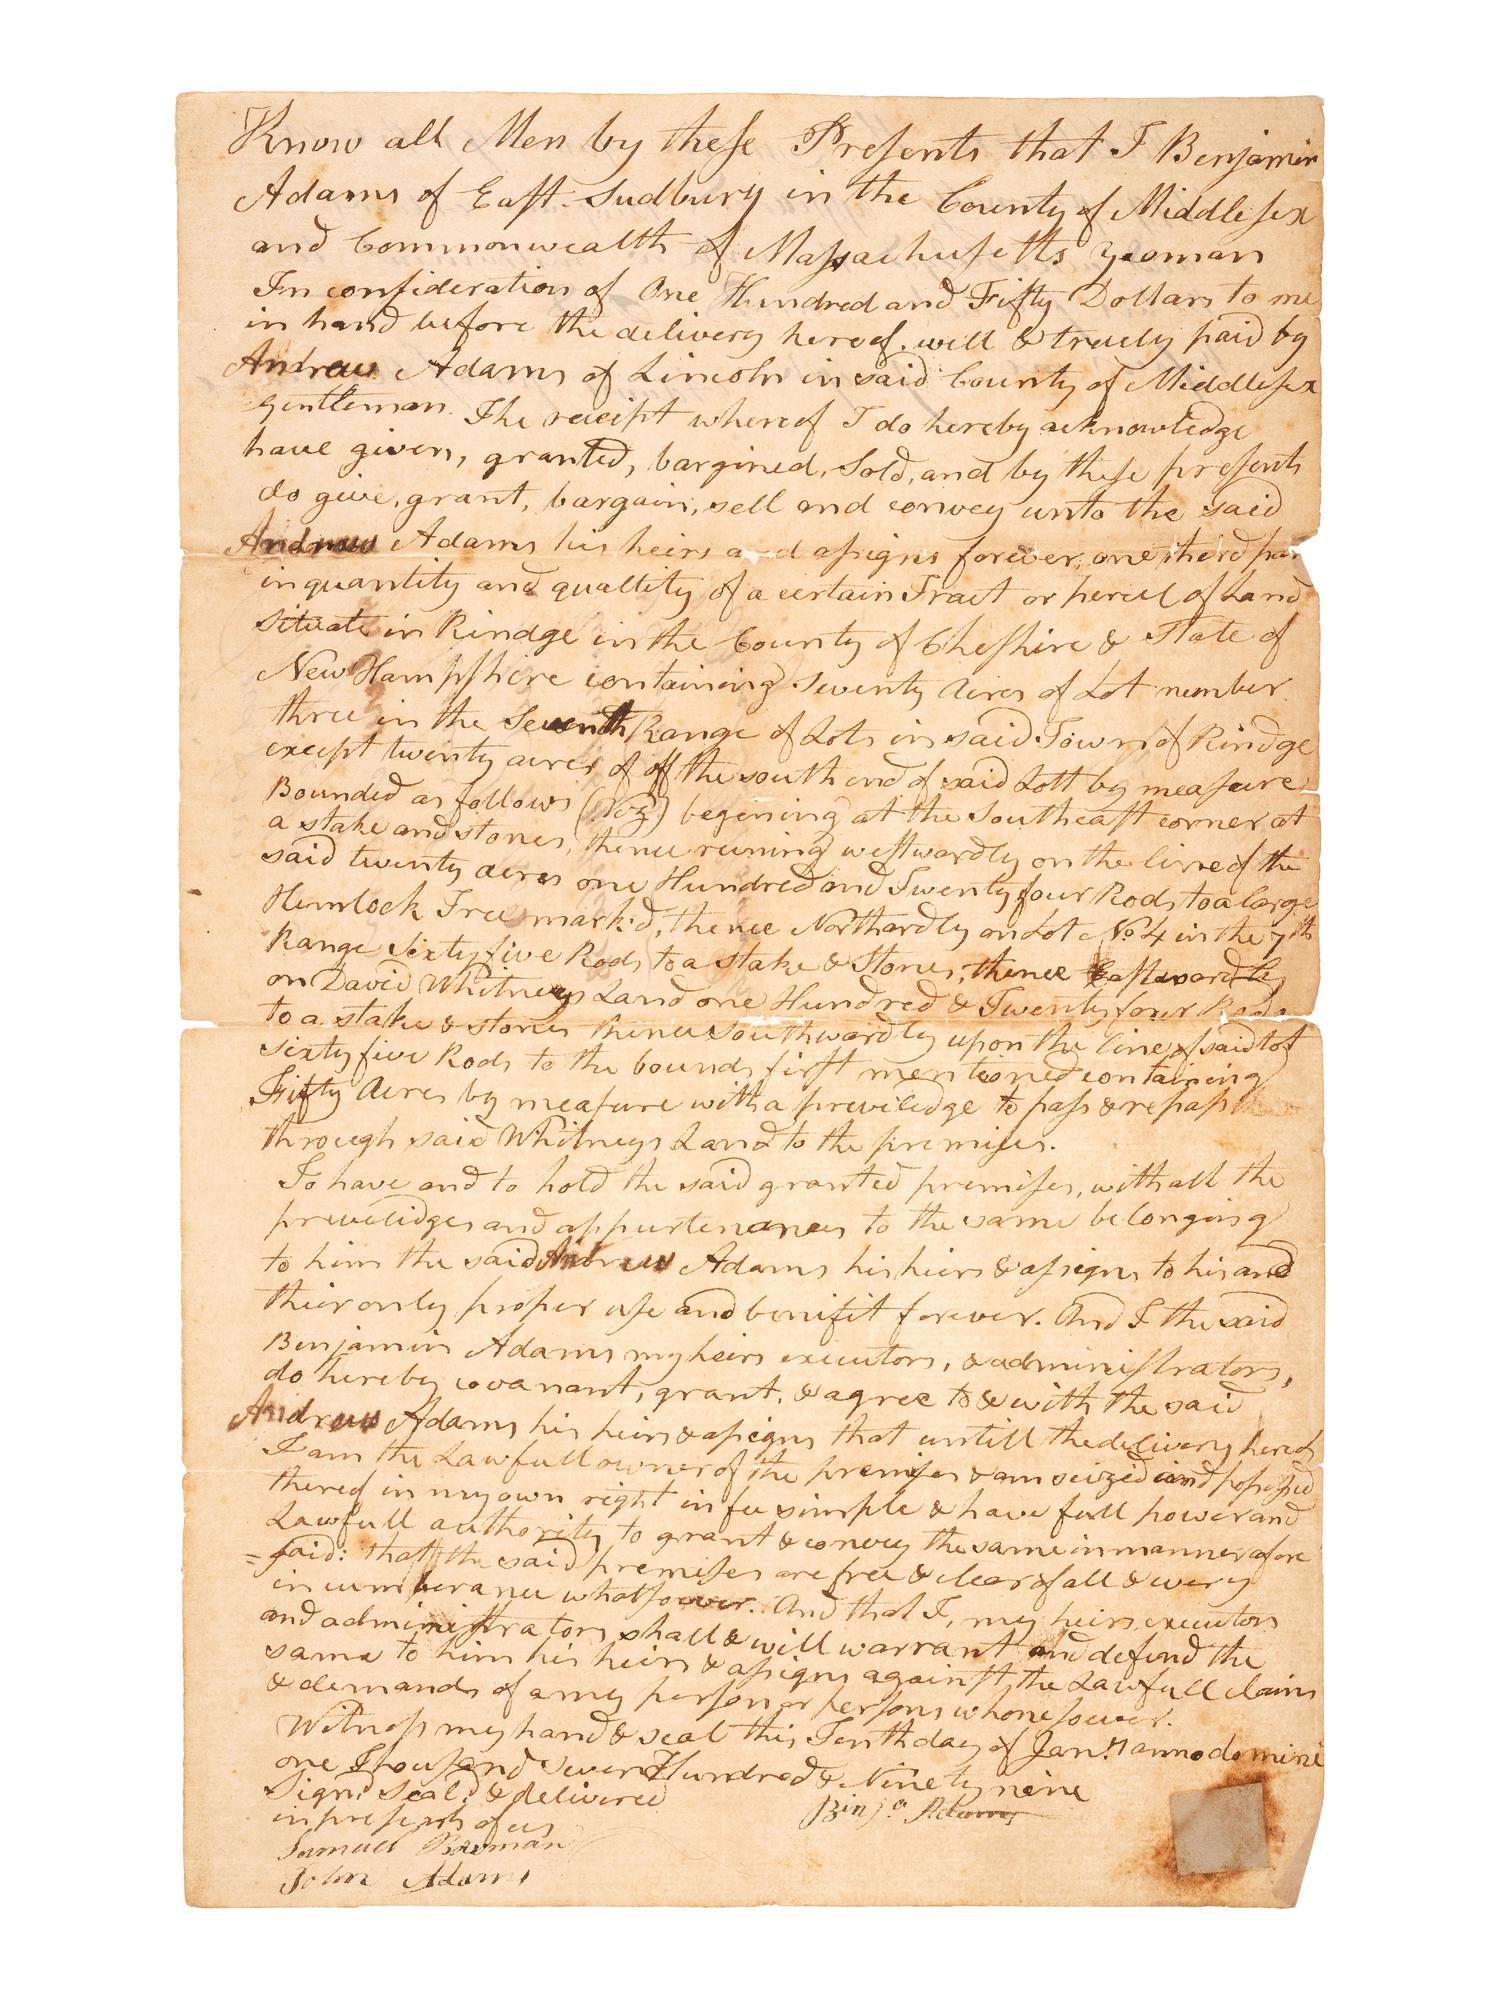 Know all Men by theſe Preſents that I Benjamin
Adams of Eaſt-Sudbury in the County of Middleſex
and Commonwealth of Maſsachuſetts yeoman
In conſideration of One Hundred and Fifty Dollars to me
in hand before the delivery hereof, well & truely paid by
Andrew Adams of Lincoln in said County of Middleſex
gentleman. The receipt whereof I do hereby acknowledge
have given, granted, bargined, Sold, and by theſe preſents
do give, grant, bargain, sell and convey unto the said
Andrew Adams his heirs and aſsigns forever, one third part
in quantity and quallity of a certain Tract or percel of Land
Situate in Rindge in the County of Cheſhire & State of
New Hampſhire containing Seventy Acres of Lot number
three in the Seventh Range of Lots in said Town of Rindge
except twenty acres of off the south end of said Lott by meaſure
Bounded as follows (Viz) begening at the Southeaſt corner at
a stake and stones, thence runing weſtwardly on the line of the
said twenty acres one Hundred and Twenty four Rods to a large
Hemlock Tree mark:d, thence Northardly on Lot No 4 in the 7th
Range Sixty five Rods to a stake & Stones, thence Eaſtwardly
on David Whitneys Land one Hundred & Twenty four Rods
to a stake & stones thence Southwardly upon the line of said lot
Sixty five Rods to the bounds firſt mentioned containing
Fifty Acres by meaſure with a previledge to paſs & repaſs
through said Whitneys Land to the premiſes.
To have and to hold the said granted premiſes, with all the
previlidges and appurtenances to the same belonging
to him the said Andrew Adams his heirs & aſsigns to his and
their only proper uſe and benifit forever. And I the said
Benjamin Adams my heirs executors, & adminiſtrators,
do hereby covanant, grant, & agree to & with the said
Andrew Adams his heirs & aſsigns that untill the delivery hereof
I am the Lawfull owner of the premiſes & am seized and poſseſsed
thereof in my own right in fee simple & have full power and
Lawfull authority to grant & convey the same in manner afore
=ſaid: that the said premiſes are free & clear of all & every
incumberance whatſoever. And that I, my heirs, executors
and adminiſtrators shall & will warrant and defend the
same to him his heirs & aſsigns againſt the Lawfull claims
& demands of any perſon or perſons whomeſoever.
Witneſs my hand & seal this Tenth day of Jan.y anno domini
one Thouſand Seven Hundred & Ninety nine
Sign:d Seal:d & delivered
in preſents of us
Benj.a Adams
Samuel
John Adams